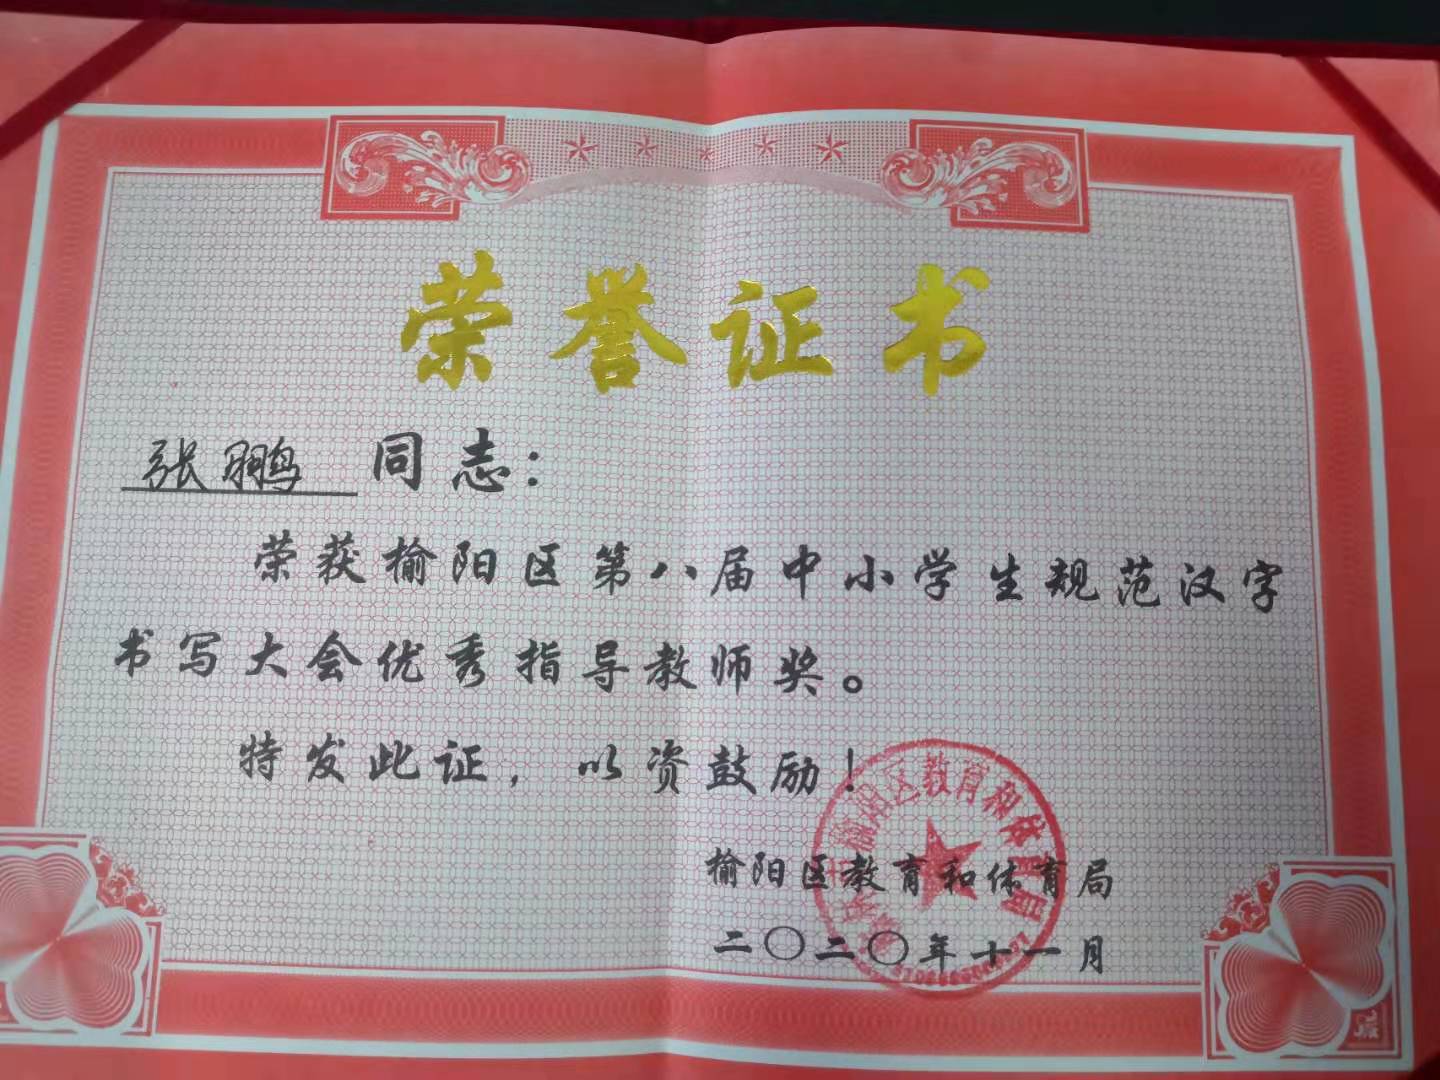 荣誉证书
张鹏 同志：
荣获榆阳区第八届中小学生规范汉字
书写大会优秀指导教师奖。
特发此证，以资鼓励！
榆阳区教育和体育局
二〇二〇年十一月
榆阳区教育和体育局